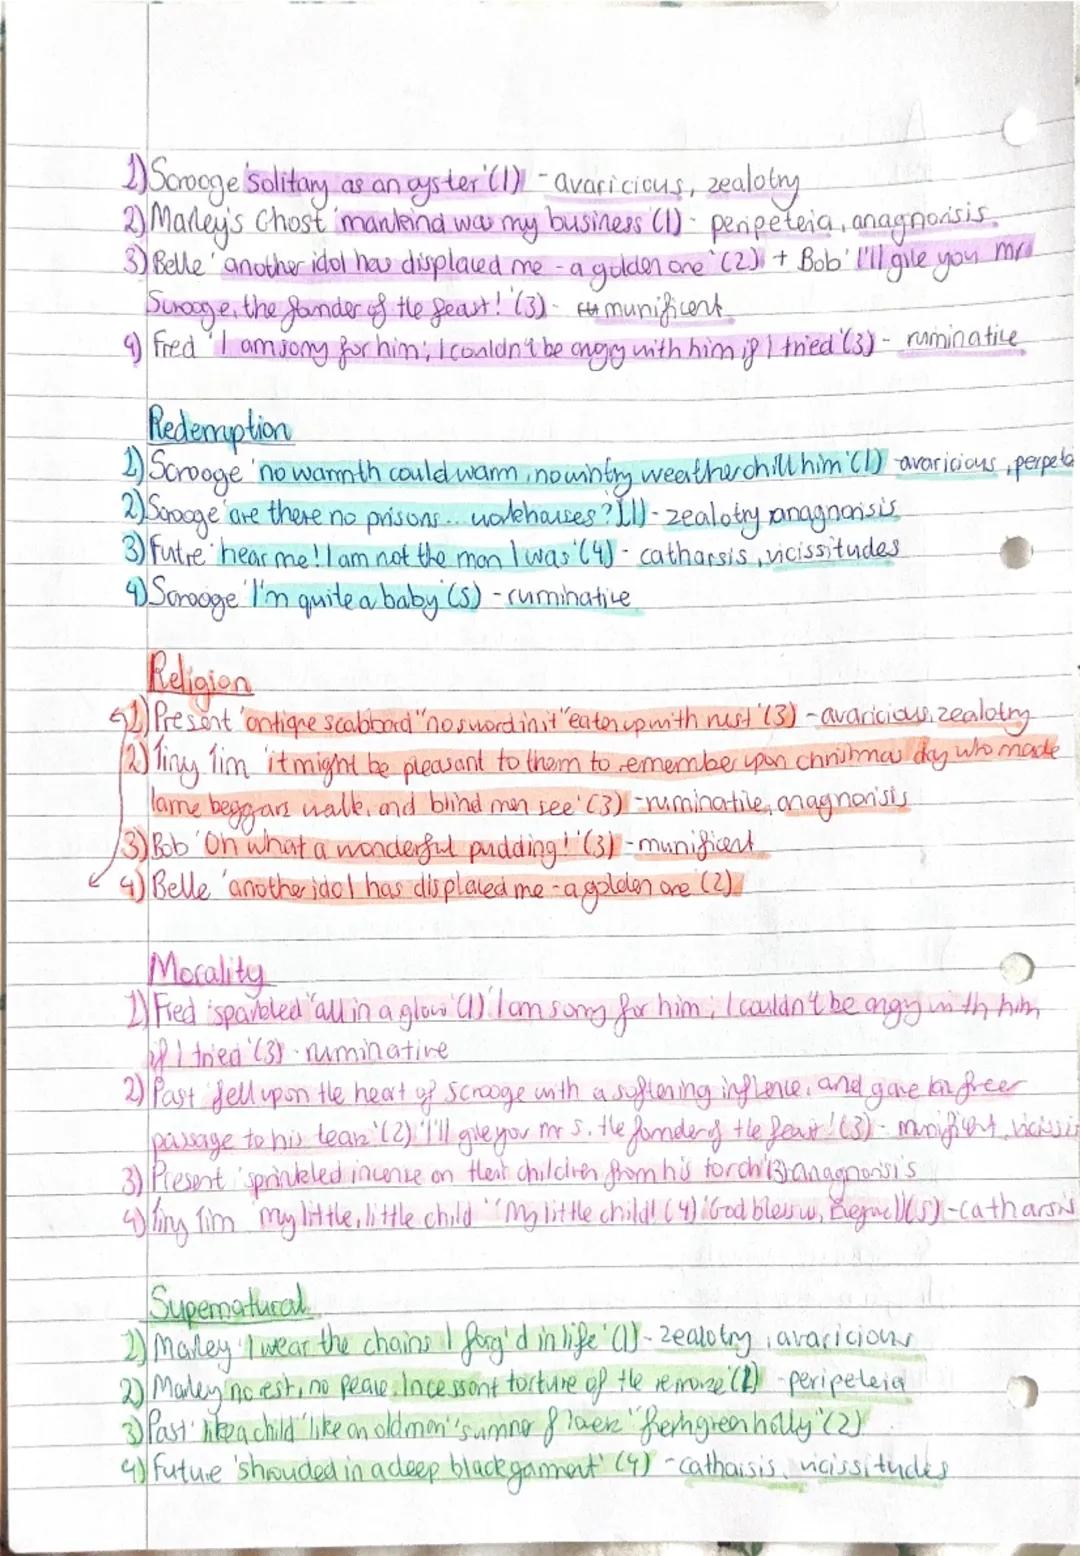 1) Scrooge 'solitary as an oyster' (1) - avaricious, zealotry
2) Marley's Ghost 'mankind was my business' (1) - peripeteia, anagnorisis
3) Belle 'another idol has displaced me - a golden one' (2) + Bob 'I'll give you Mr
Scrooge, the founder of the feast!' (3) - munificent
4) Fred 'I am sorry for him; I couldn't be angry with him if I tried' (3) - ruminative
Redemption
1) Scrooge 'no warmth could warm, no wintry weather chill him' (1) - avaricious, perpete
2) Scrooge 'are there no prisons... workhouses?' (1) - zealotry anagnorisis
3) Futre 'hear me! I am not the man I was' (4) - catharsis, vicissitudes
4) Scrooge 'I'm quite a baby' (5) - ruminative
Religion
1) Present 'antique scabbard' 'no sword in it' 'eaten up with rust' (3) - avaricious, zealotry
2) Tiny Tim 'it might be pleasant to them to remember upon christmas day who made
lame beggars walk, and blind men see' (3) - ruminative, anagnorisis
3) Bob 'Oh what a wonderful pudding!' (3) - munificent
4) Belle 'another idol has displaced me - a golden one' (2)
Morality
1) Fred 'sparkled' 'all in a glow' (1) 'I am sorry for him; I couldn't be angry with him
if I tried' (3) - ruminative
2) Past 'fell upon the heart of Scrooge with a softening influence, and gave a freer
passage to his tears' (2) 'I'll give you mr S. the founder of the feast!' (3) - munificent, vicissi
3) Present 'sprinkled incense on their children from his torch' (3) anagnorisis
4) Tiny Tim 'my little, little child' 'My little child!' (4) 'God bless us, (5) - catharsis
Supernatural
1) Marley 'I wear the chains I forg'd in life' (1) - zealotry, avaricious
2) Marley 'no rest, no peace. Incessant torture of the remorse' (1) - peripeteia
3) Past 'like a child' 'like an old man' 'summer flowers' 'fresh green holly' (2)
4) Future 'shrouded in a deep black garment' (4) - catharsis, vicissitudes